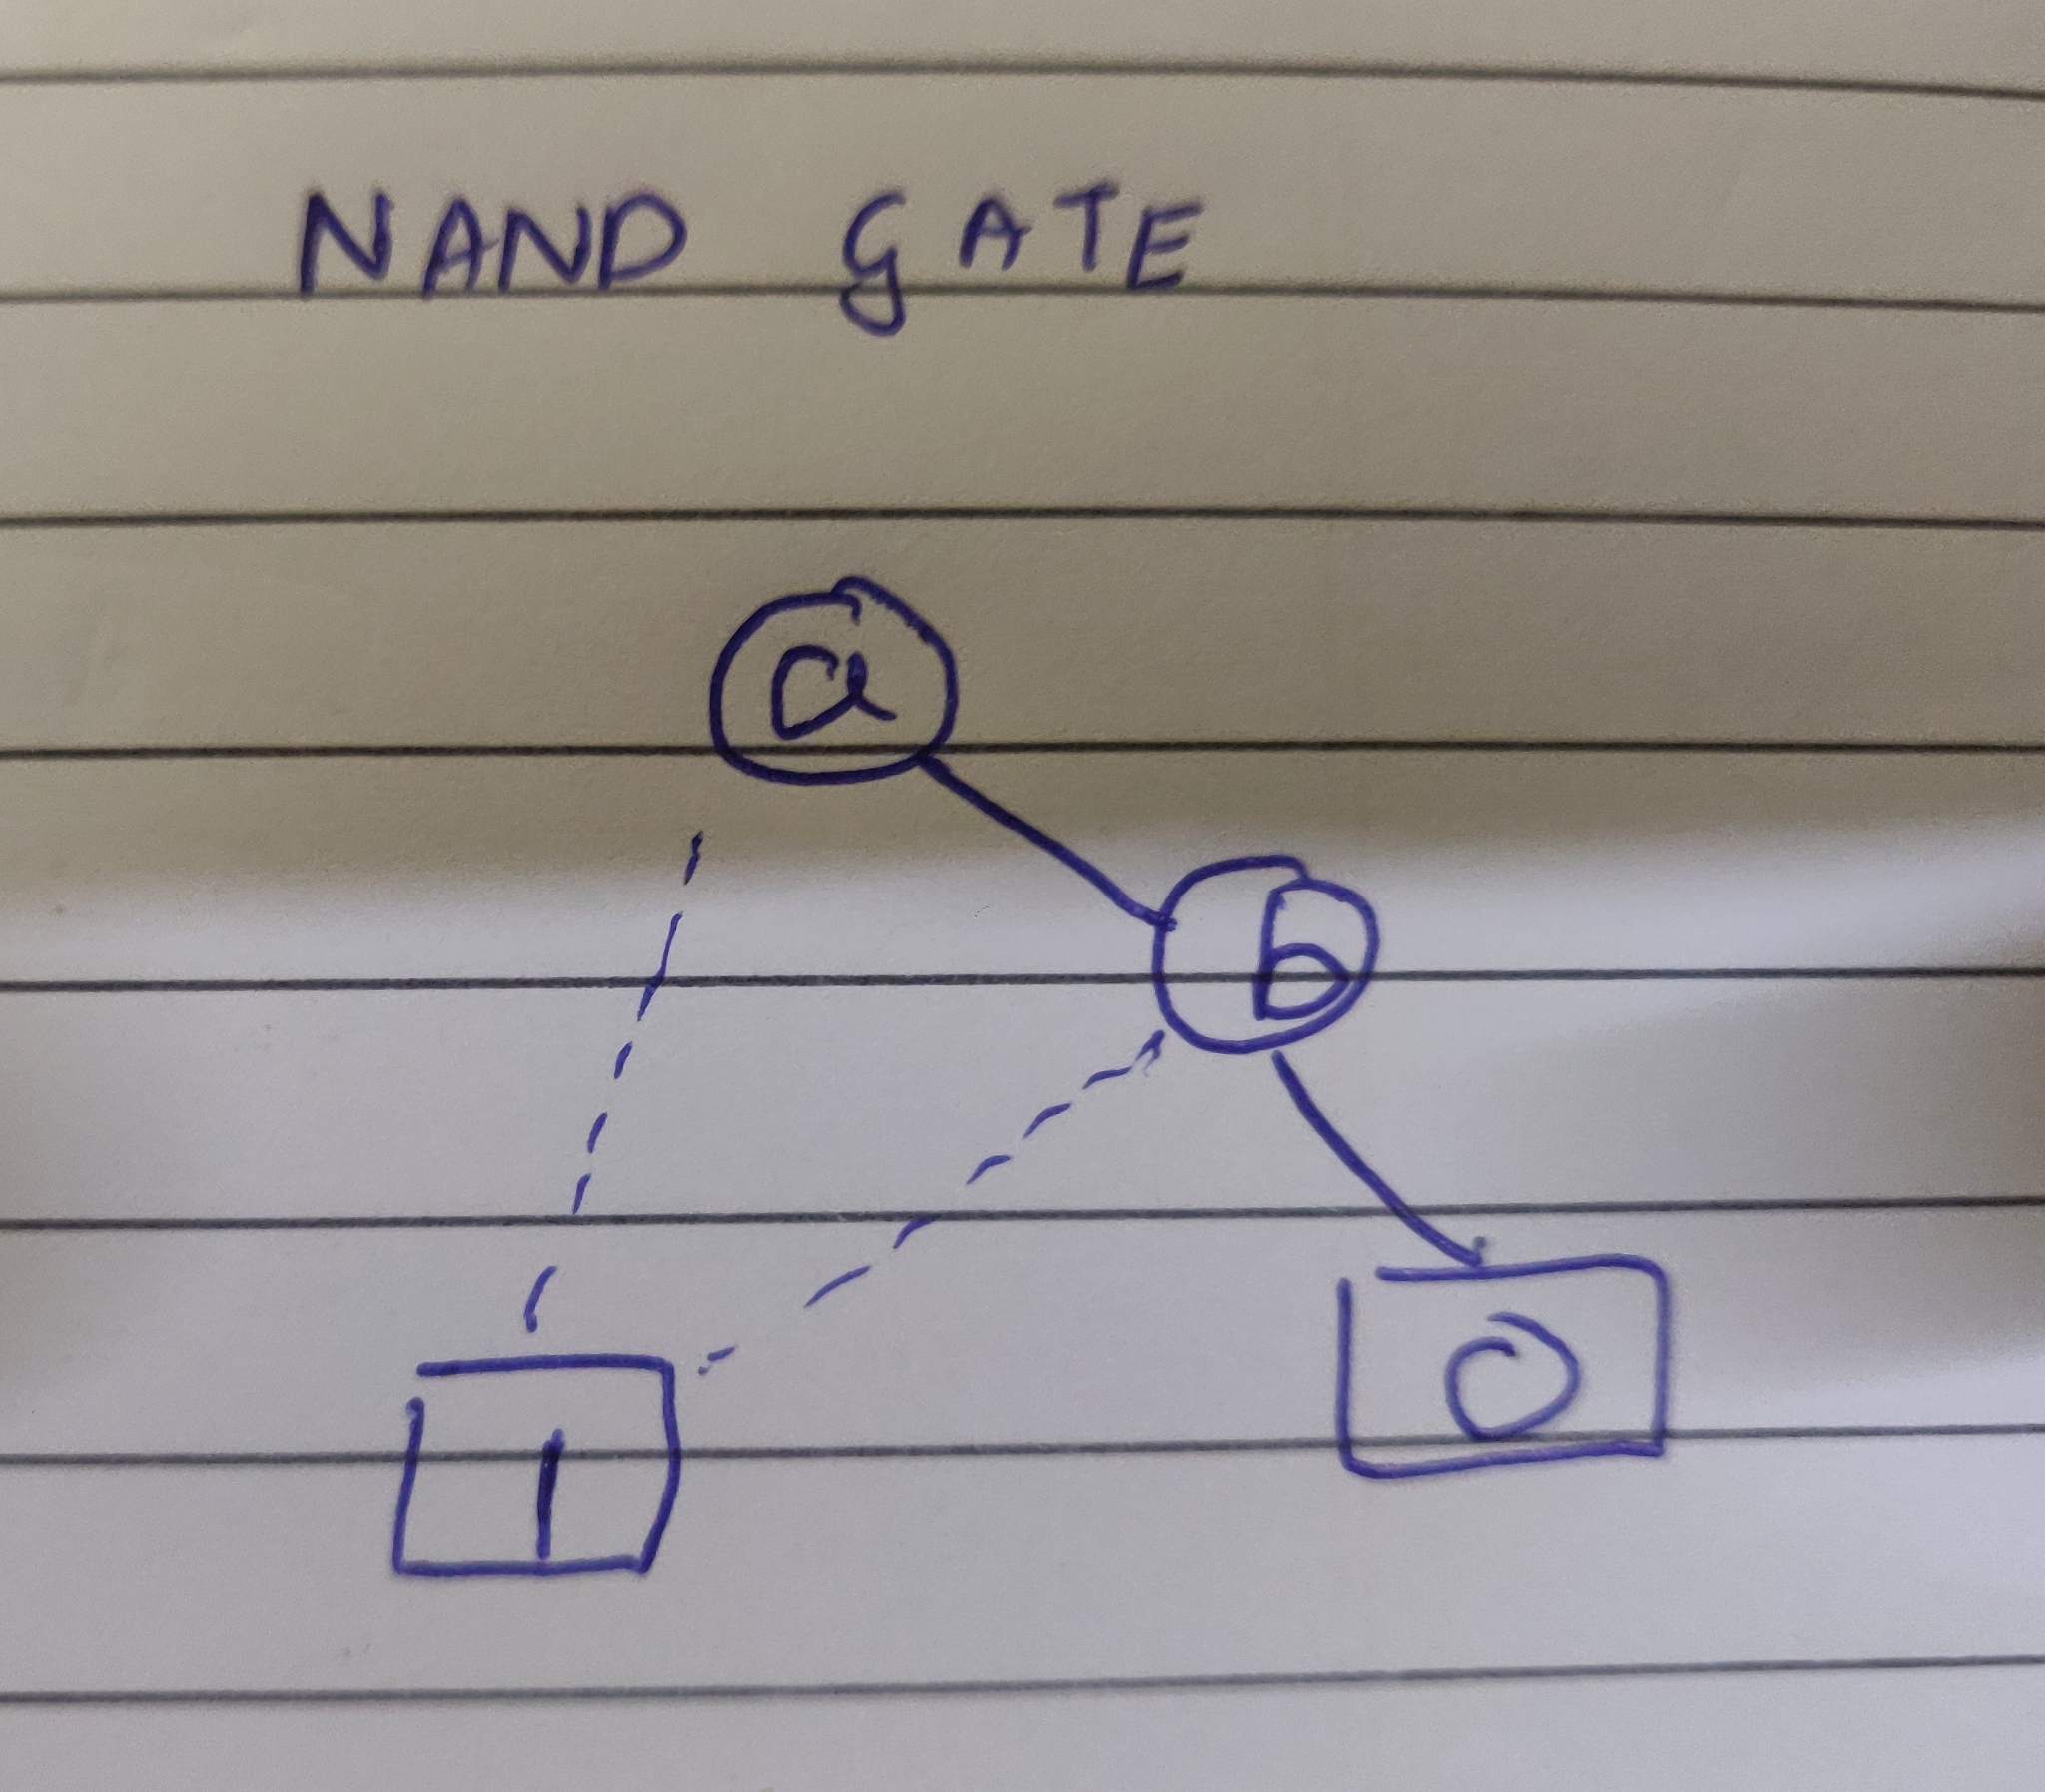 NAND GATE
a
b
0
1